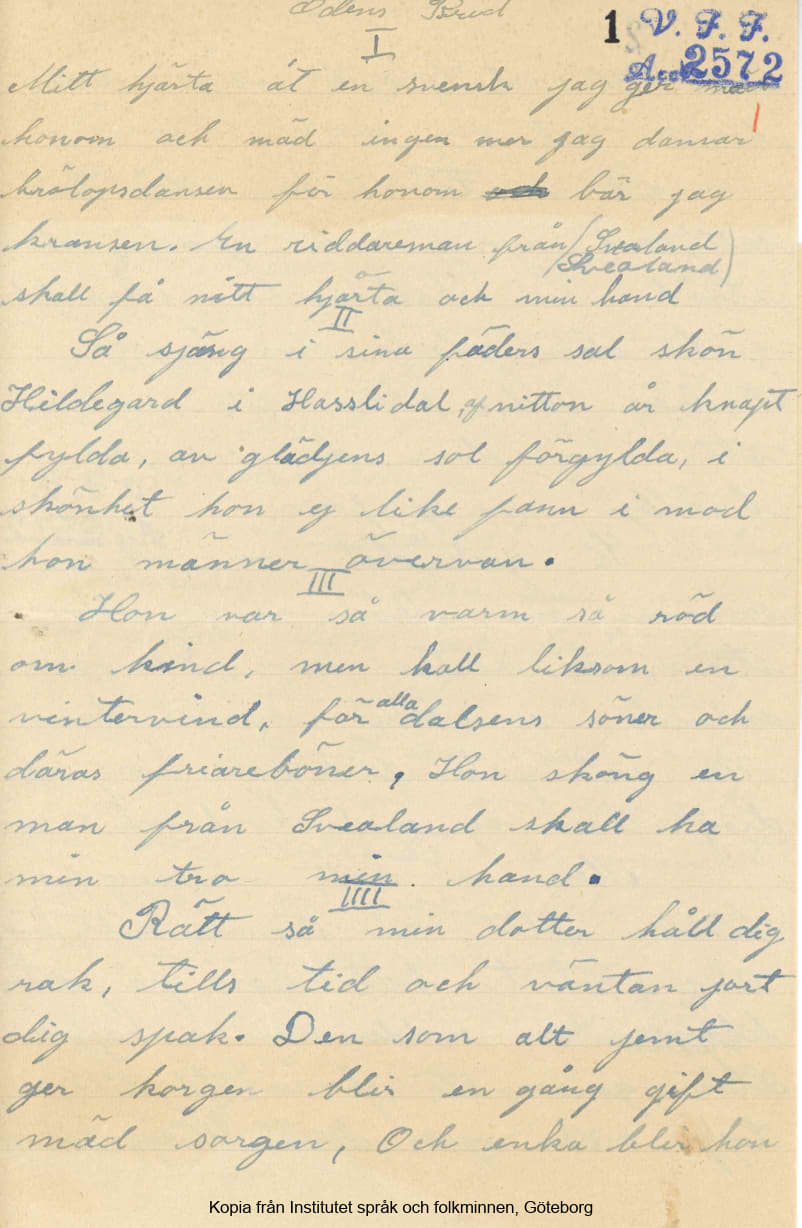 Odens Brud
1 V. F. F.
Acc 2572
I
Mitt hjärta åt en svensk jag ger män
honom och mäd ingen mer jag dansar
brölopsdansen för honom och bär jag
kransen. En riddaresman från (Svealand
Svealand)
skall få mitt hjärta och min hand
II
Så sjöng i sina fäders sal skön
Hildegard i Hasslidal, af nitton år knapt
fylda, av glädjens sol förgylda, i
skönhet hon ej like fann i mod
hon männer övervan.
III
Hon var så varm så röd
om kind, men kall liksom en
vintervind, för alla dalsens söner och
däras friareböner, Hon sköng en
man från Svealand skall ha
min tro min hand.
IIII
Rätt så min dotter håll dig
rak, tills tid och väntan jort
dig spak. Den som alt jemt
ger korgen blir en gång gift
mäd sorgen, Och enka blir hon
Kopia från Institutet språk och folkminnen, Göteborg